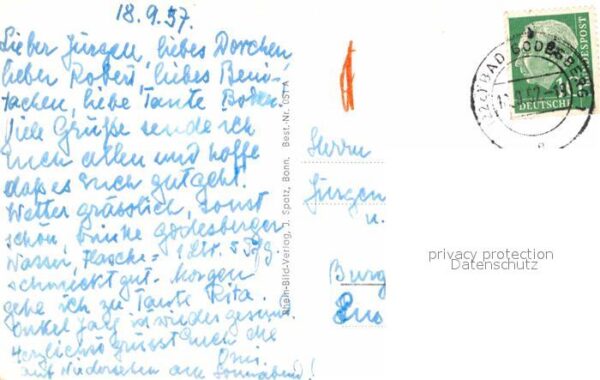 18.9.57.
Lieber Jürgen, liebes Dorchen,
lieber Robert, liebes Beni-
chen, liebe Tante
Viele Grüße sende ich
Euch allen und hoffe
daß es Euch gut geht.
Wetter grässlich, sonst
schön, trinke Godesberger
Wasser, Flasche = 1 Ltr.
schmeckt gut. Morgen
gehe ich zu Tante Rita.
Onkel ist wieder gesund.
Herzlichst grüsst Euch die
Omi.
Auf Wiedersehen am Sonnabend!
Rhein-Bild-Verlag, J. Spatz, Bonn. Best.-Nr. 051 A
Herrn
Jürgen
u.
Burg
BAD GODESBERG
DEUTSCHE BUNDESPOST
privacy protection
Datenschutz